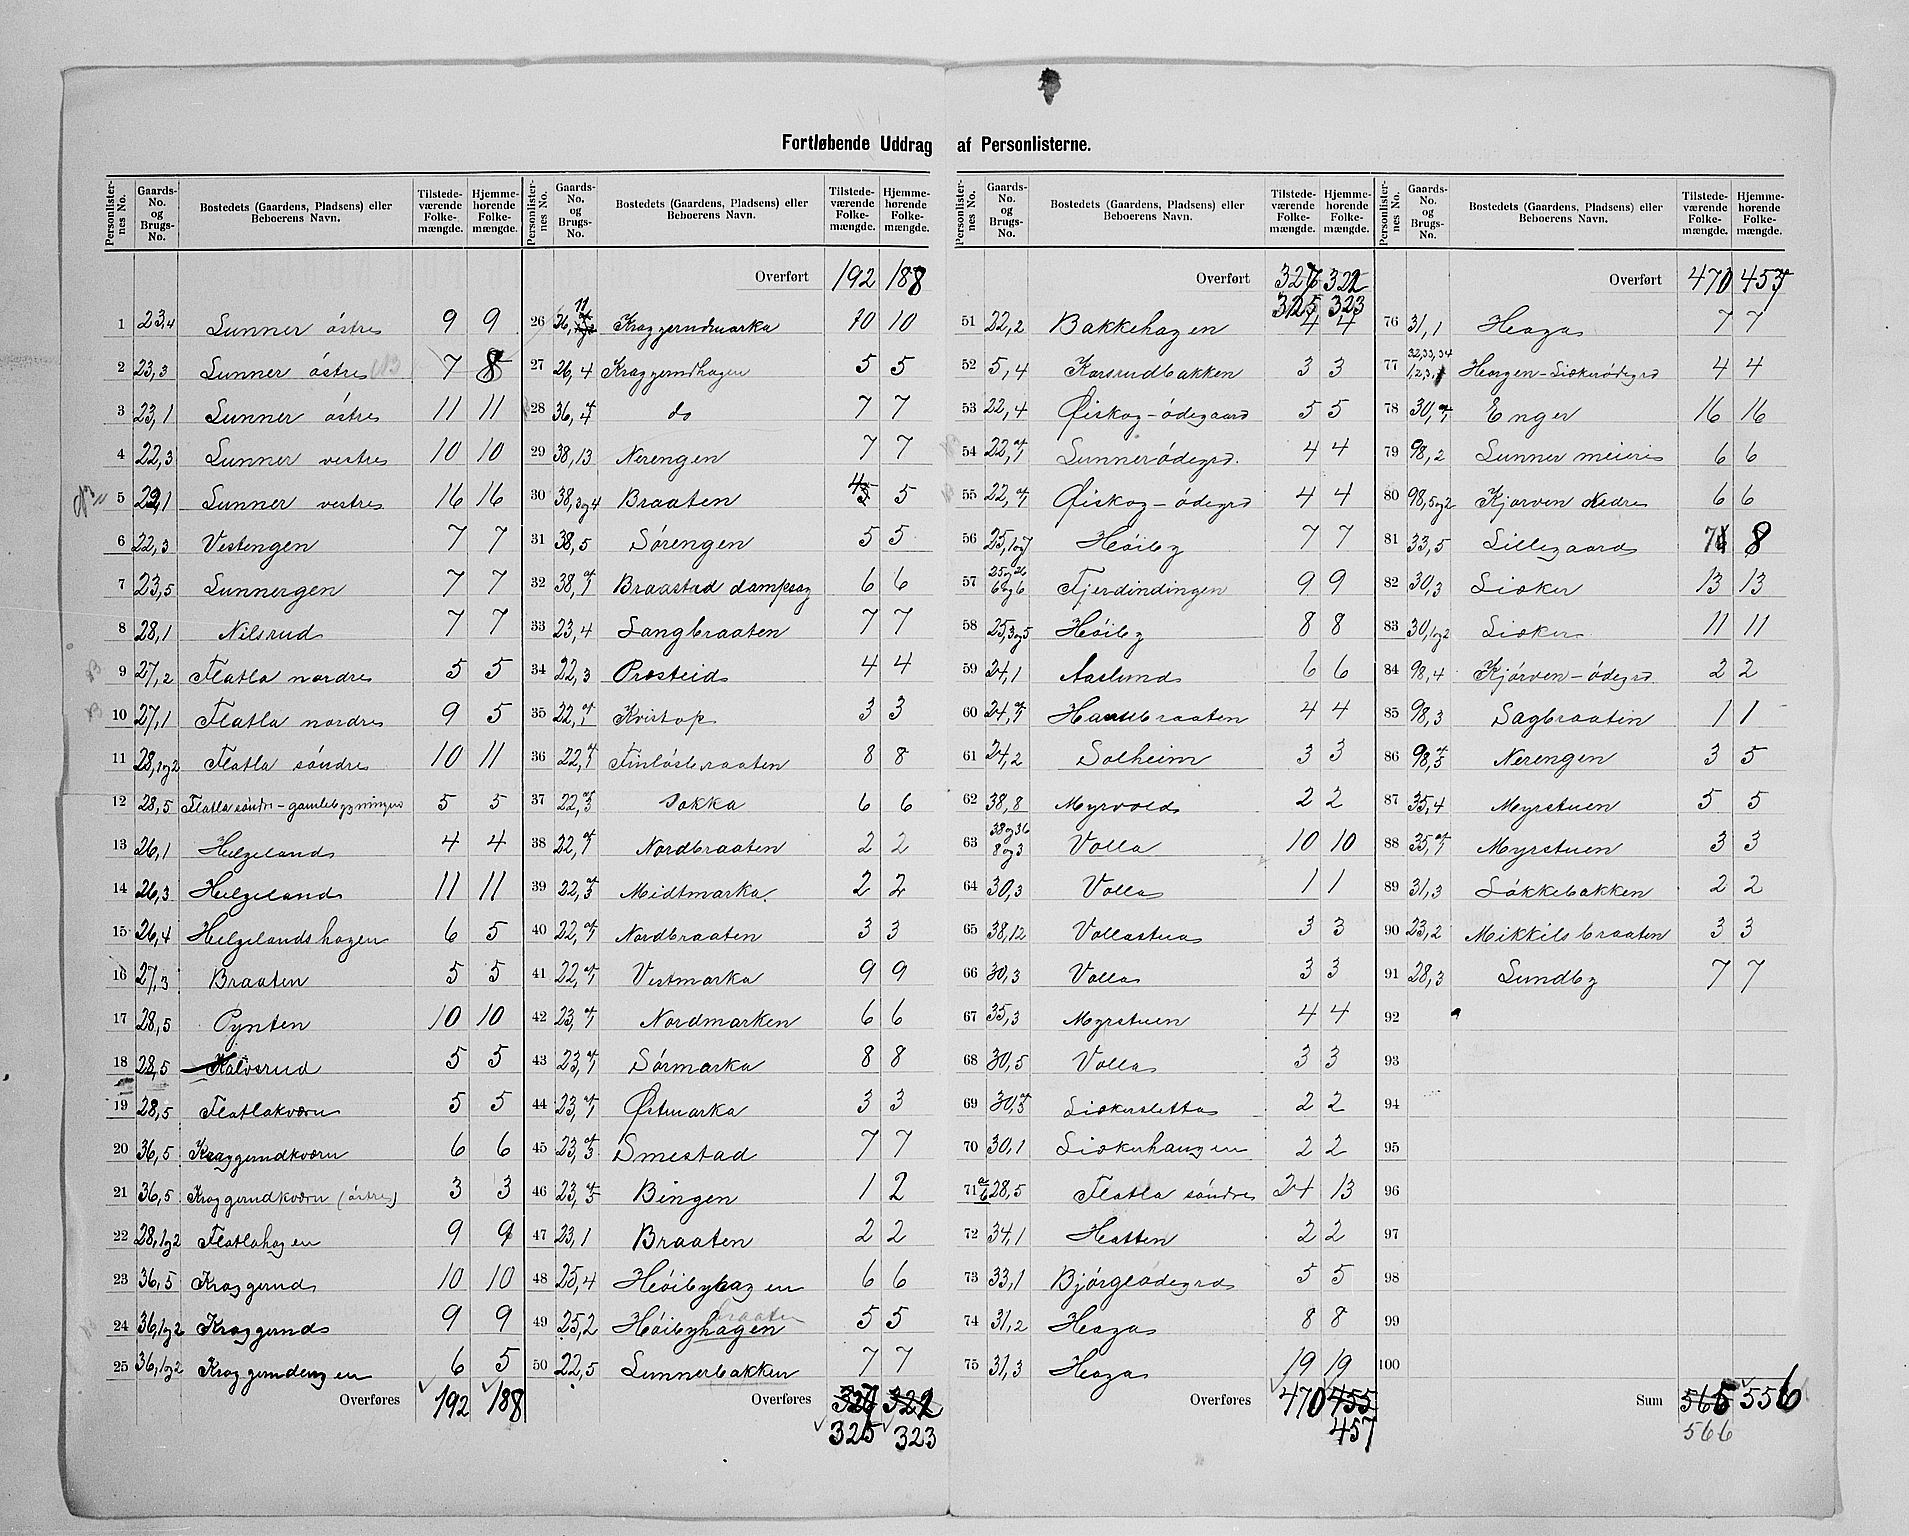 Fortløbende Uddrag af Personlisterne.
Personlister-nes No. | Gaards-No. og Brugs-No. | Bostedets (Gaardens, Pladsens) eller Beboerens Navn. | Tilstede-værende Folke-mængde. | Hjemme-hørende Folke-mængde.
1 23,4 Lunner östre 9 9
2 23,3 Lunner östre 7 8
3 23,1 Lunner östre 11 11
4 22,3 Lunner vestre 10 10
5 22,1 Lunner vestre 16 16
6 22,3 Vestengen 7 7
7 23,5 Lunnergen 7 7
8 28,1 Nilsrud 7 7
9 27,2 Flatla nordre 5 5
10 27,1 Flatla nordre 9 5
11 28,1og2 Flatla söndre 10 11
12 28,5 Flatla söndre - gamlebygningen 5 5
13 26,1 Helgeland 4 4
14 26,3 Helgeland 11 11
15 26,4 Helgelandshagen 6 5
16 27,3 Braaten 5 5
17 28,5 Pynten 10 10
18 28,5 Kalvsrud 5 5
19 28,5 Flatlakværn 5 5
20 36,5 Kraggerudkværn 6 6
21 36,5 Kraggerudkværn (östre) 3 3
22 28,1og2 Flatlahagen 9 9
23 36,5 Kraggerud 10 10
24 36,1og2 Kraggerud 9 9
25 36,1og2 Kraggerudengen 6 5
Overføres 192 188
Personlister-nes No. | Gaards-No. og Brugs-No. | Bostedets (Gaardens, Pladsens) eller Beboerens Navn. | Tilstede-værende Folke-mængde. | Hjemme-hørende Folke-mængde.
Overført 192 188
26 36, Kraggerudmarka 10 10
27 26,4 Kraggerudhagen 5 5
28 36,4 do 7 7
29 38,13 Nerengen 7 7
30 38,3og4 Braaten 4 5
31 38,5 Sørengen 5 5
32 38,af1 Braastad dampsag 6 6
33 23,4 Langbraaten 7 7
34 22,3 Præsteid 4 4
35 22,af1 Kvistop 3 3
36 22,af1 Finlösbraaten 8 8
37 22,af3 Sokka 6 6
38 22,af1 Nordbraaten 2 2
39 22,af3 Midtmarka. 2 2
40 22,af1 Nordbraaten 3 3
41 22,af1 Vestmarka 9 9
42 23,af1 Nordmarken 6 6
43 23,af1 Sörmarka 8 8
44 23,af1 Østmarka 3 3
45 23,af3 Smestad 7 7
46 23,af5 Bingen 1 2
47 23,1 Braaten 2 2
48 25,4 Höibyhagen 6 6
49 25,2 Höibyhagen braaten 5 5
50 22,5 Lunnerbakken 7 7
Overføres 327 322
325 323
Personlister-nes No. | Gaards-No. og Brugs-No. | Bostedets (Gaardens, Pladsens) eller Beboerens Navn. | Tilstede-værende Folke-mængde. | Hjemme-hørende Folke-mængde.
Overført 327 322
325 323
51 22,2 Bakkehagen 4 4
52 5,4 Korsrudbakken 3 3
53 22,4 Øiskog-ödegaard 5 5
54 22,af1 Lunnerödegrd. 4 4
55 22,af1 Øiskog-ödegrd 4 4
56 25,1og7 Höiby 7 7
57 25og26 6og6 Fjerdindingen 9 9
58 25,3og5 Höiby 8 8
59 24,1 Aaslund 6 6
60 24,af1 Haneebraaten 4 4
61 24,2 Solheim 3 3
62 38,8 Myrvold 2 2
63 38og36 8og3 Volla 10 10
64 30,3 Volla 1 1
65 38,12 Vollastua 3 3
66 30,3 Volla 3 3
67 35,3 Myrstuen 4 4
68 30,5 Volla 3 3
69 30,af5 Liökersletta 2 2
70 30,1 Liökerhaugen 2 2
71 a b 28,5 Flatla söndre 24 13
72 34,1 Hatten 2 2
73 33,1 Bjørgeödegrd 5 5
74 31,2 Haga 8 8
75 31,3 Haga 19 19
Overføres 470 455
457
Personlister-nes No. | Gaards-No. og Brugs-No. | Bostedets (Gaardens, Pladsens) eller Beboerens Navn. | Tilstede-værende Folke-mængde. | Hjemme-hørende Folke-mængde.
Overført 470 457
76 31,1 Haga 7 7
77 32,33,34 1,2,3, Horgen-Liökerödegrd 4 4
78 30,af1 Enger 16 16
79 98,2 Lunner meieri 6 6
80 98,5og2 Kjörven Nedre 6 6
81 33,5 Lillegaard 7 8
82 30,3 Liöker 13 13
83 30,1og2 Liöker 11 11
84 98,4 Kjörven-ödegrd 2 2
85 98,3 Sagbraatin 1 1
86 98,af5 Nerengen 3 5
87 35,4 Myrstuen 5 5
88 35,af1 Myrstuen 3 3
89 31,3 Løkkebakken 2 2
90 23,2 Mikkilsbraaten 3 3
91 28,3 Lundby 7 7
92
93
94
95
96
97
98
99
100
Sum 565 556
566